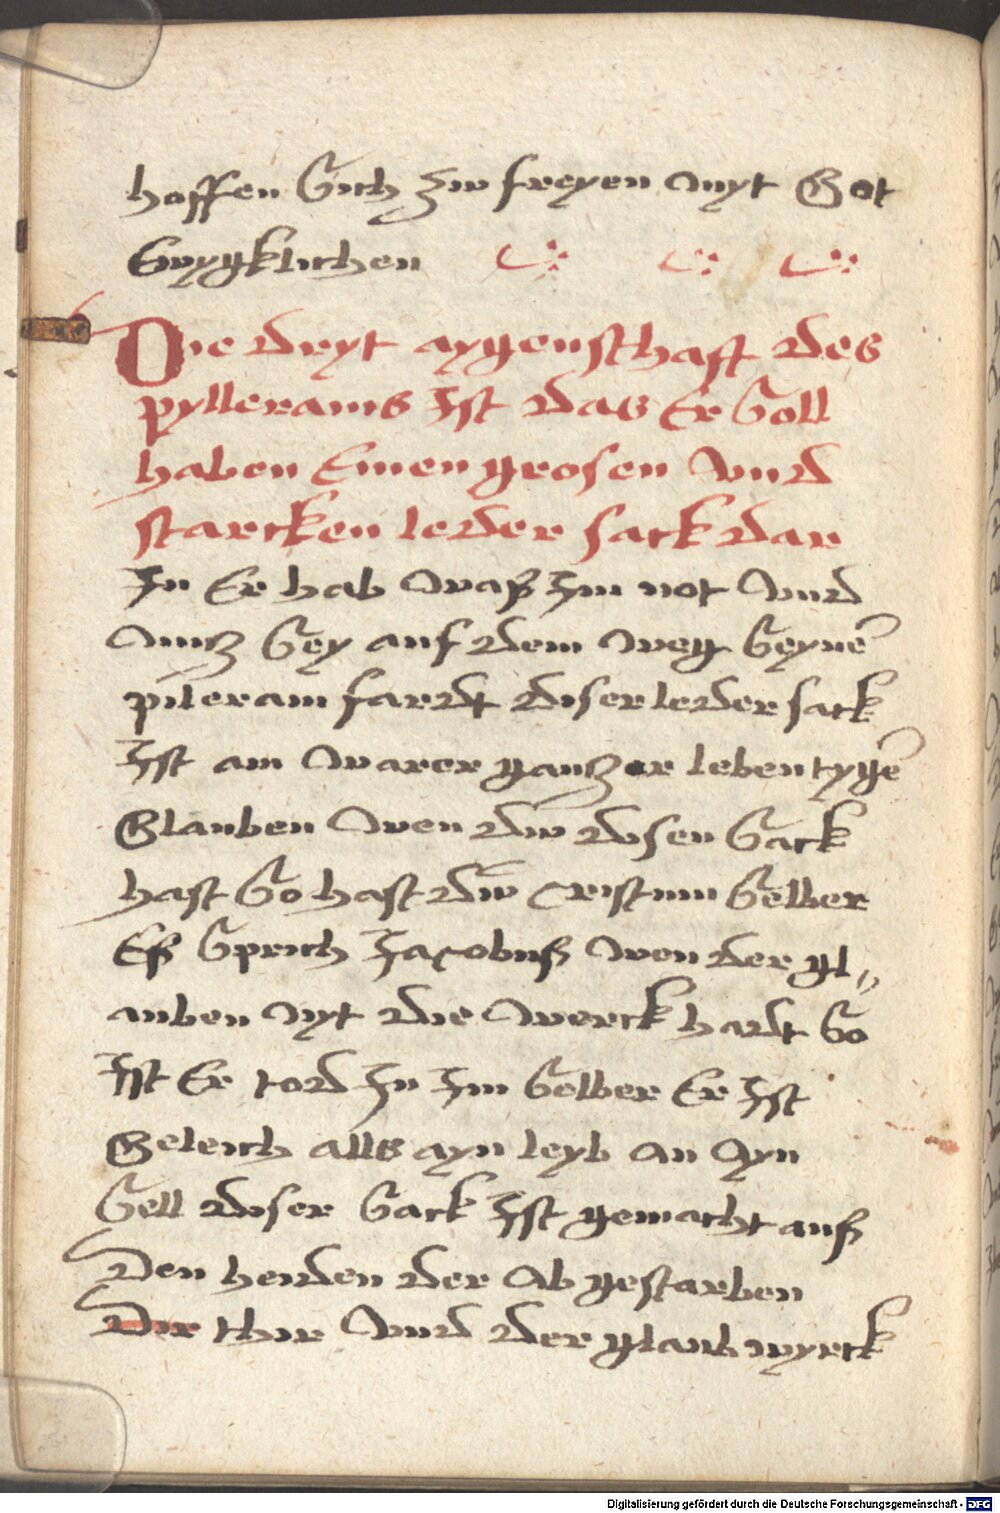 hoffen sich zw freyen myt Got
Ewygklichen
Die dryt aygenschaft des
pyllerams Ist das Er soll
haben Einen grosen vnd
starcken leder sack dar
In Er hab waß Im not vnd
nutz sey auf dem weg seynē
pileram fardt diser leder sack
Ist am warer gantzer lebentygē
Glauben wen dw disen sack
hast so hast dw Cristum selber
Eß sprich Jacobuß wen der gl„
auben nyt die werck hardt so
Ist Er tod In Im selber Er Ist
Geleich alls ayn leyb an ayn
sell diser sack Ist gemacht auß
Den heuden der ab gestarben
Dir thir vnd der glaub wyrck
Digitalisierung gefördert durch die Deutsche Forschungsgemeinschaft - DFG